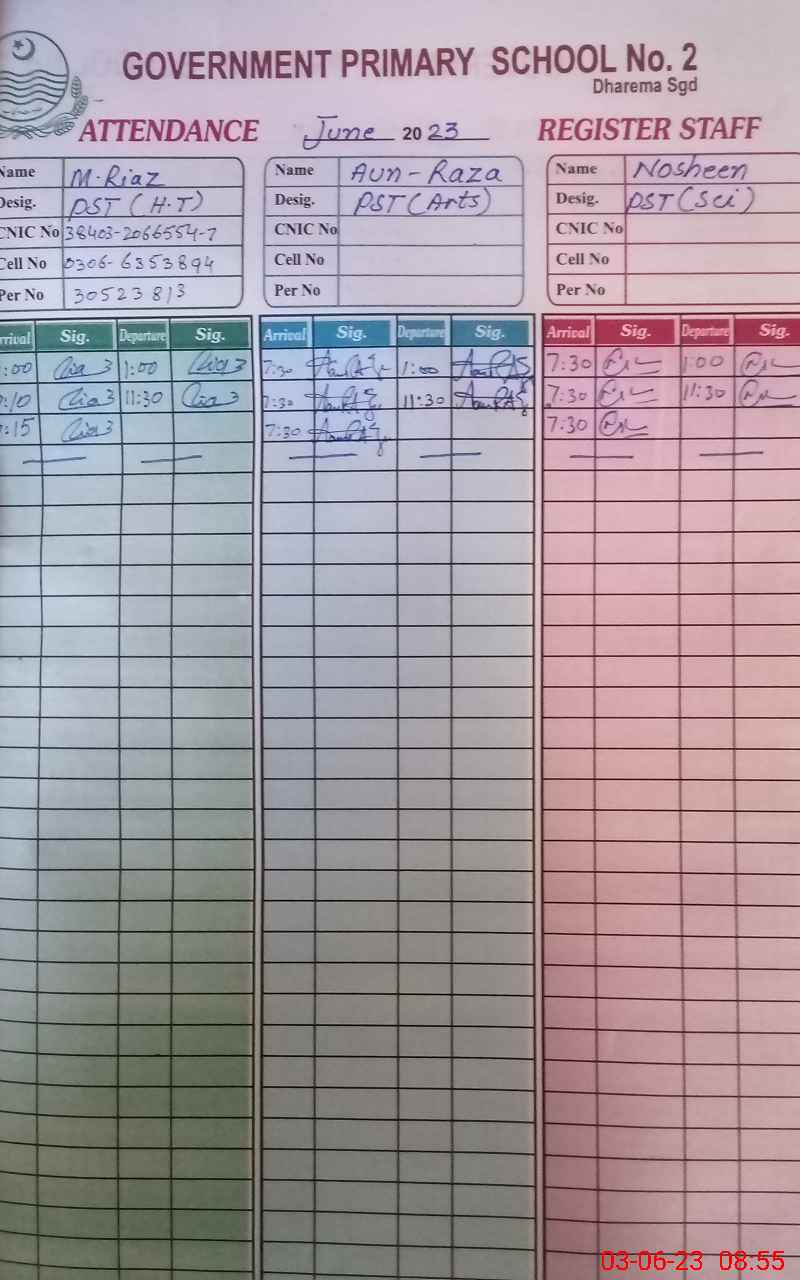 GOVERNMENT PRIMARY SCHOOL No. 2
Dharema Sgd
ATTENDANCE June 2023 REGISTER STAFF
Name M.Riaz Name Aun-Raza Name Nosheen
Desig. PST (H.T) Desig. PST (Arts) Desig. PST (Sci)
CNIC No 38403-2066554-7 CNIC No CNIC No
Cell No 0306-6353894 Cell No Cell No
Per No 30523813 Per No Per No
rrival Sig. Departure Sig. Arrival Sig. Departure Sig. Arrival Sig. Departure Sig.
:00 1:00 7:30 1:00 7:30 1:00
:10 11:30 7:30 11:30 7:30 11:30
:15 7:30 7:30
03-06-23 08:55